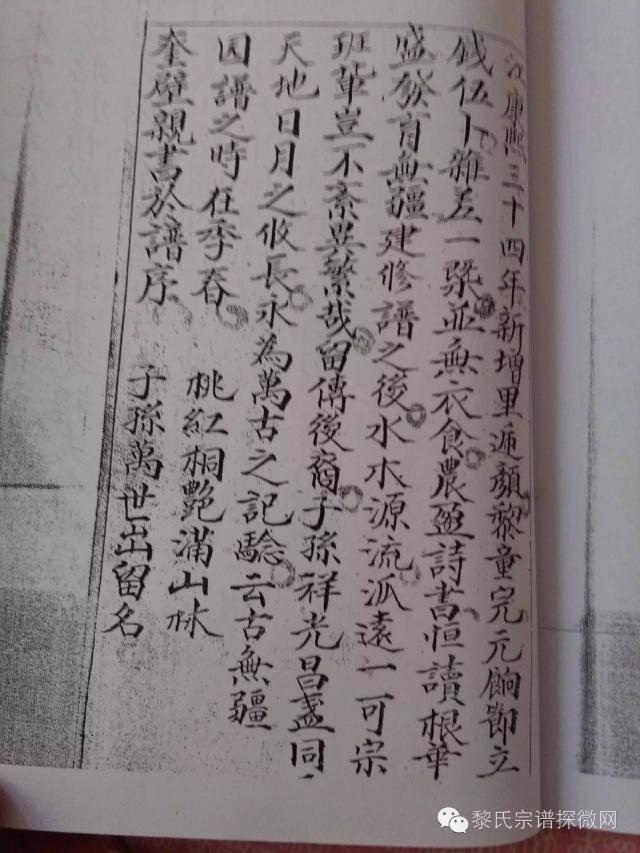 康熙三十四年新增里遞顏黎童完元餉鄭立
錢伍卜雜差一槩並無衣食農蚕詩書恒讀根華
盛發育無疆建修譜之後水木源流派遠一可宗
班輩豈不紊異繁哉留傳後裔子孫祥光昌盛同
天地日月之攸長永為萬古之記騐云古無疆
因譜之時在季春 桃紅桐艷滿山林
奎壁親書於譜序 子孫萬世出留名
黎氏宗谱探微网